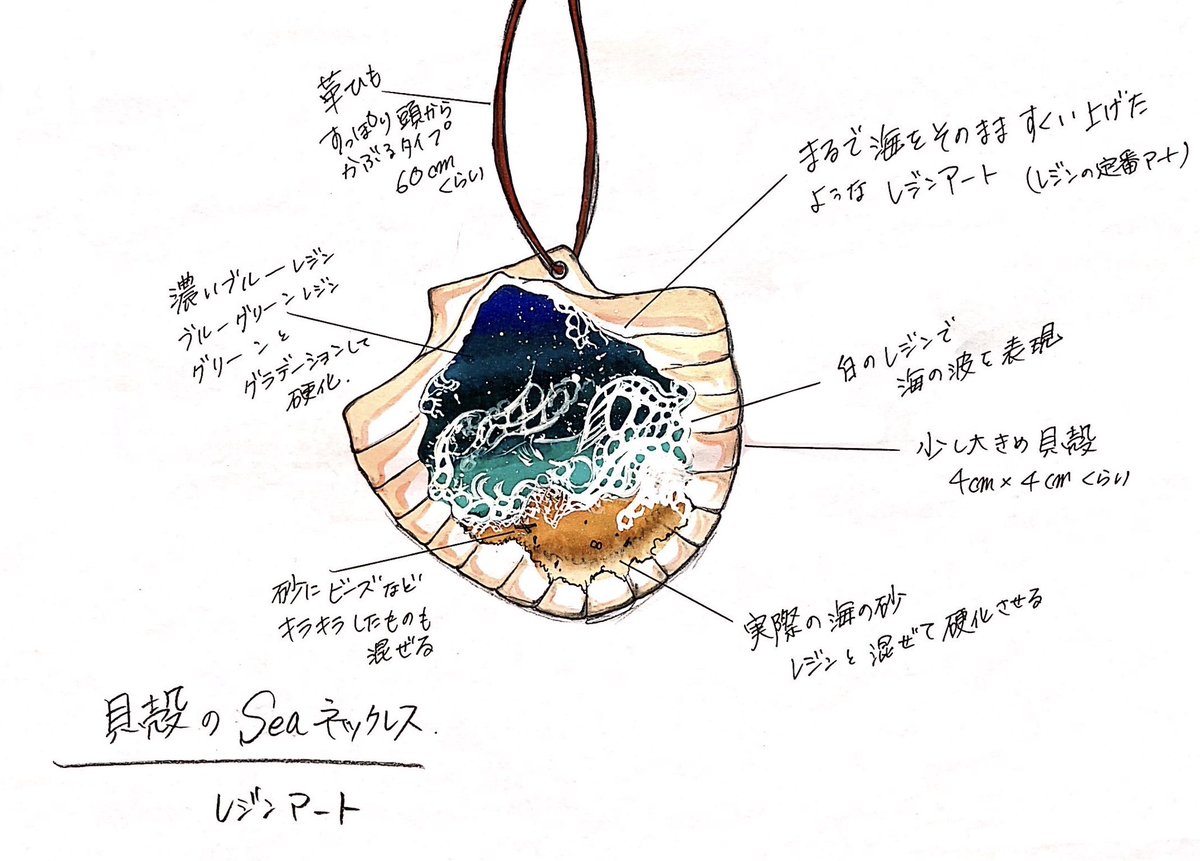 革ひも
すっぽり頭から
かぶるタイプ
60cm
くらい
まるで海をそのまますくい上げた
ような レジンアート (レジンの定番アート)
濃いブルーレジン
ブルーグリーンレジン
グリーンと
グラデーションして
硬化.
白のレジンで
海の波を表現
少し大きめ貝殻
4cm×4cmくらい
砂にビーズなど
キラキラしたものも
混ぜる
実際の海の砂
レジンと混ぜて硬化させる
貝殻のSeaネックレス.
レジンアート